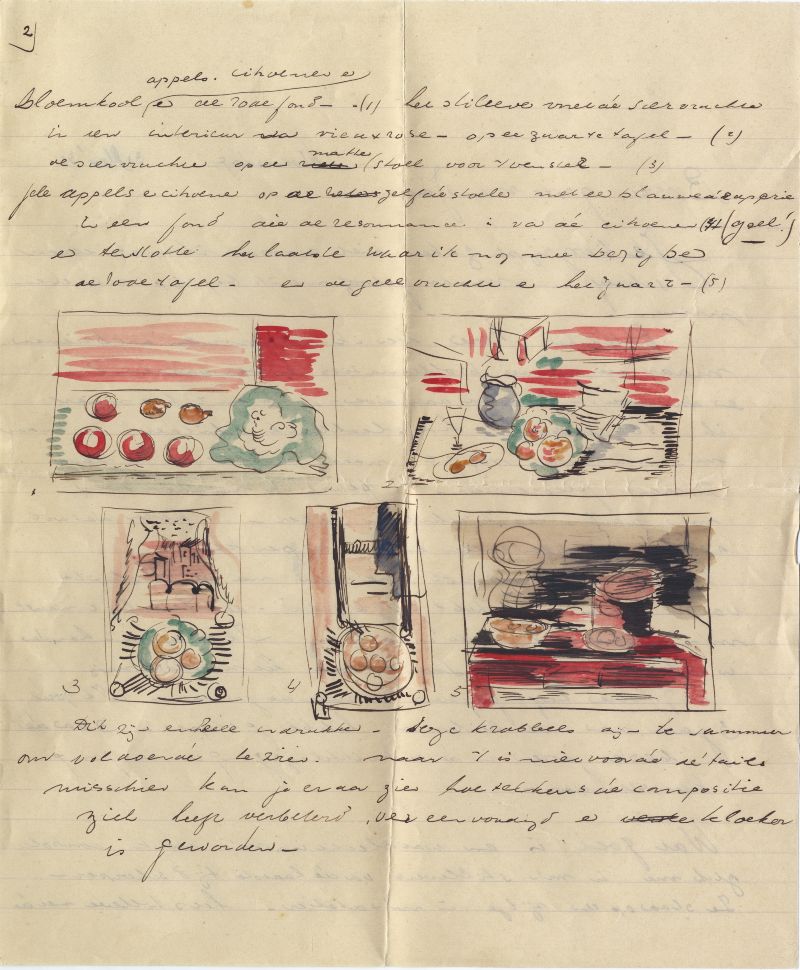 2
appels. citroenen e
bloemkool e de rode fond – (1) het stilleve met de siervruchte
in een interieur vieuxrose – op ee zwarte tafel – (2)
de siervruchte op ee matte stoel voor 't venster – (3)
de appels e citroene op zelfde stoele met ee blauwe draperie
en een fond die de resonnance is va de citroenen (4) (geel!)
e tenslotte het laatste waar ik nog mee bezig be
de rode tafel – e de gele vruchte e het zwart – (5)
1
2
3
4
5
Dit zijn enkele indrukke – deze krabbels zij te summier
om voldoende te zien. maar 't is niet voor de détails
misschien kan je eraa zie hoe telkens de compositie
zich heeft verbeterd, vereenvoudigd e kloeker
is geworden –